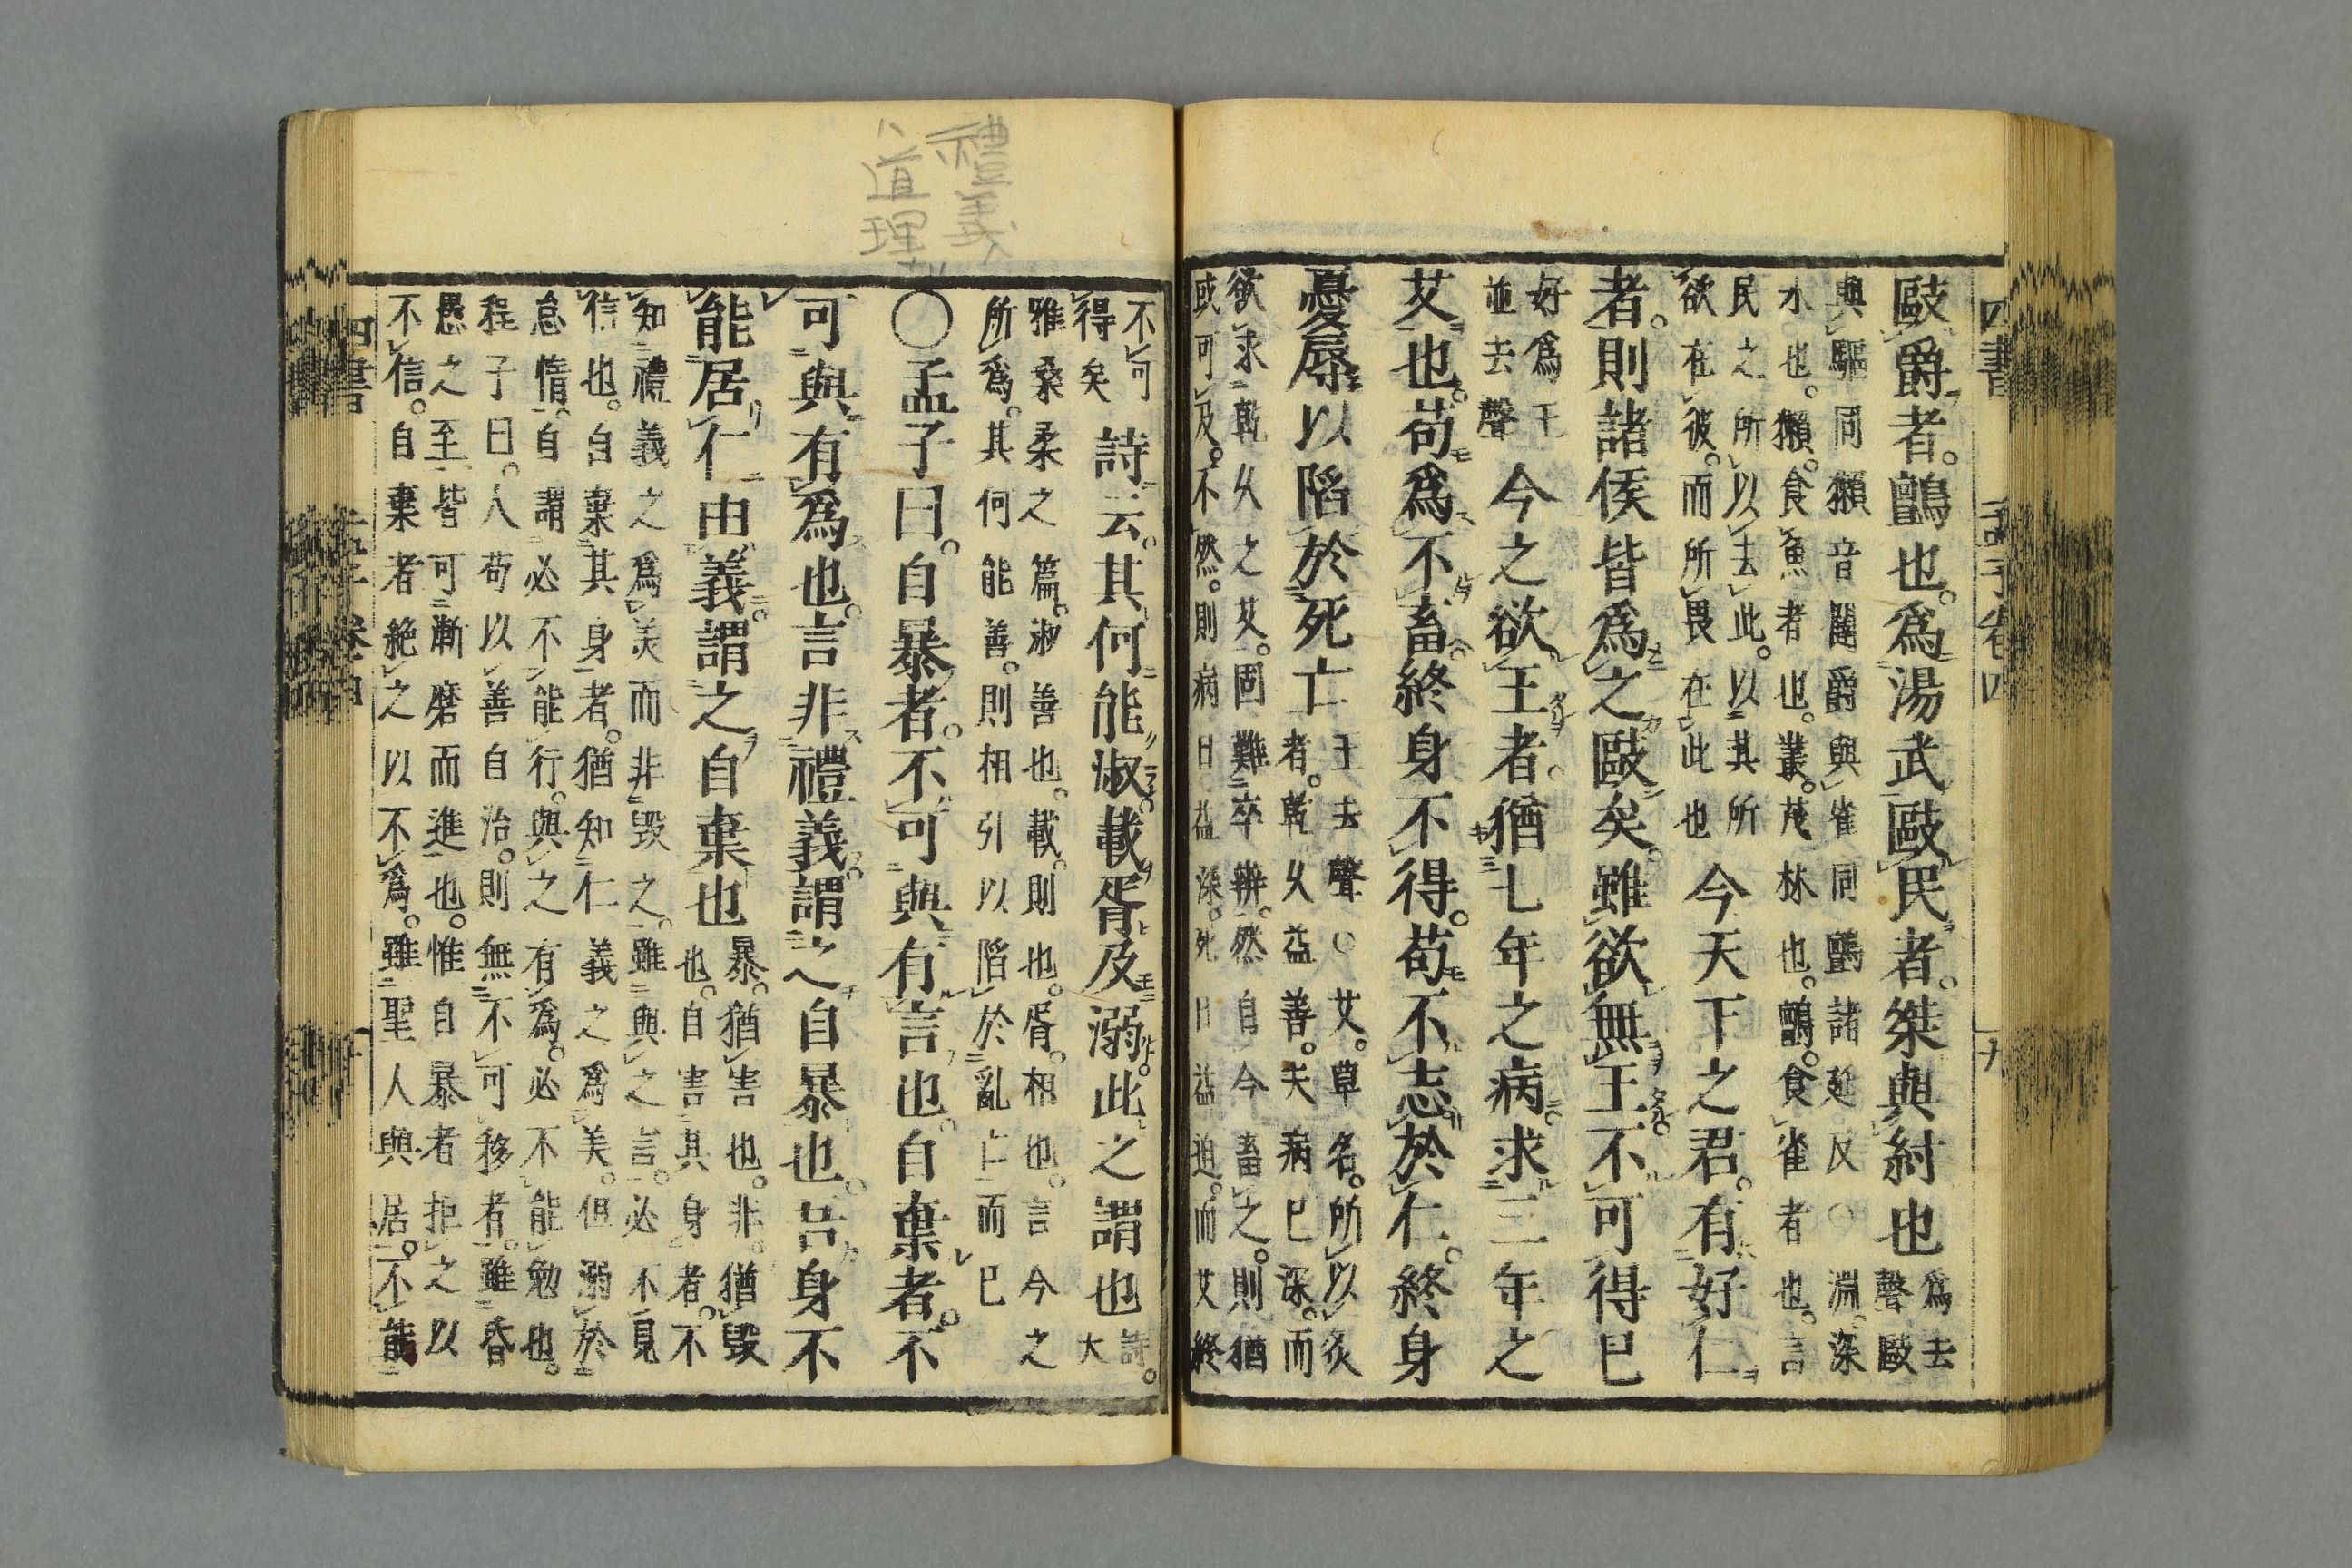 四書
孟子卷四
九
敺爵者。鸇也。爲湯武敺民者。桀與紂也
爲去
聲敺
與驅同獺音闥爵與雀同鸇諸延反○淵。深
水也。獺。食魚者也。叢。茂林也。鸇。食雀者也。言
民之所以去此。以其所
欲在彼。而所畏在此也
今天下之君。有好仁
者。則諸侯皆爲之敺矣。雖欲無王。不可得已
好爲王
並去聲
今之欲王者。猶七年之病。求三年之
艾也。苟爲不畜。終身不得。苟不志於仁。終身
憂辱。以陷於死亡
王去聲○艾。草名。所以灸
者。乾久益善。夫病已深。而
欲求乾久之艾。固難卒辨。然自今畜之。則猶
或可及。不然。則病日益深。死日益迫。而艾終
不可
得矣
詩云。其何能淑。載胥及溺。此之謂也
詩。
大
雅桑柔之篇。淑善也。載。則也。胥。相也。言今之
所爲。其何能善。則相引以陷於亂亡而已
○孟子曰。自暴者。不可與有言也。自棄者。不
可與有爲也。言非禮義。謂之自暴也。吾身不
能居仁由義。謂之自棄也
暴。猶害也。非。猶毀
也。自害其身者。不
知禮義之爲美而非毀之。雖與之言。必不見
信也。自棄其身者。猶知仁義之爲美。但溺於
怠惰。自謂必不能行。與之有爲。必不能勉也。
程子曰。人苟以善自治。則無不可移者。雖昏
愚之至。皆可漸磨而進也。惟自暴者拒之以
不信。自棄者絶之以不爲。雖聖人與居。不能
四書
孟子卷四
禮義
道理